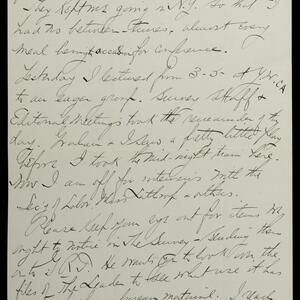 They kept me going in N.Y. so hard I
had no between times, almost every
meal being occasion for conference.
Yesterday I lectured from 3-5 at Y.W.CA
to an eager group. Survey staff &
Editorial Meetings took the remainder of the
day. Graham & I saw a pretty little
before I took the mid-night train here.
Now I am off for interviews with the
Sec'y of Labor, Miss Lathrop & others.
Please keep your eyes out for items we
ought to notice in The Survey & send them
on to
files of The Leader to see what use it has
material. I